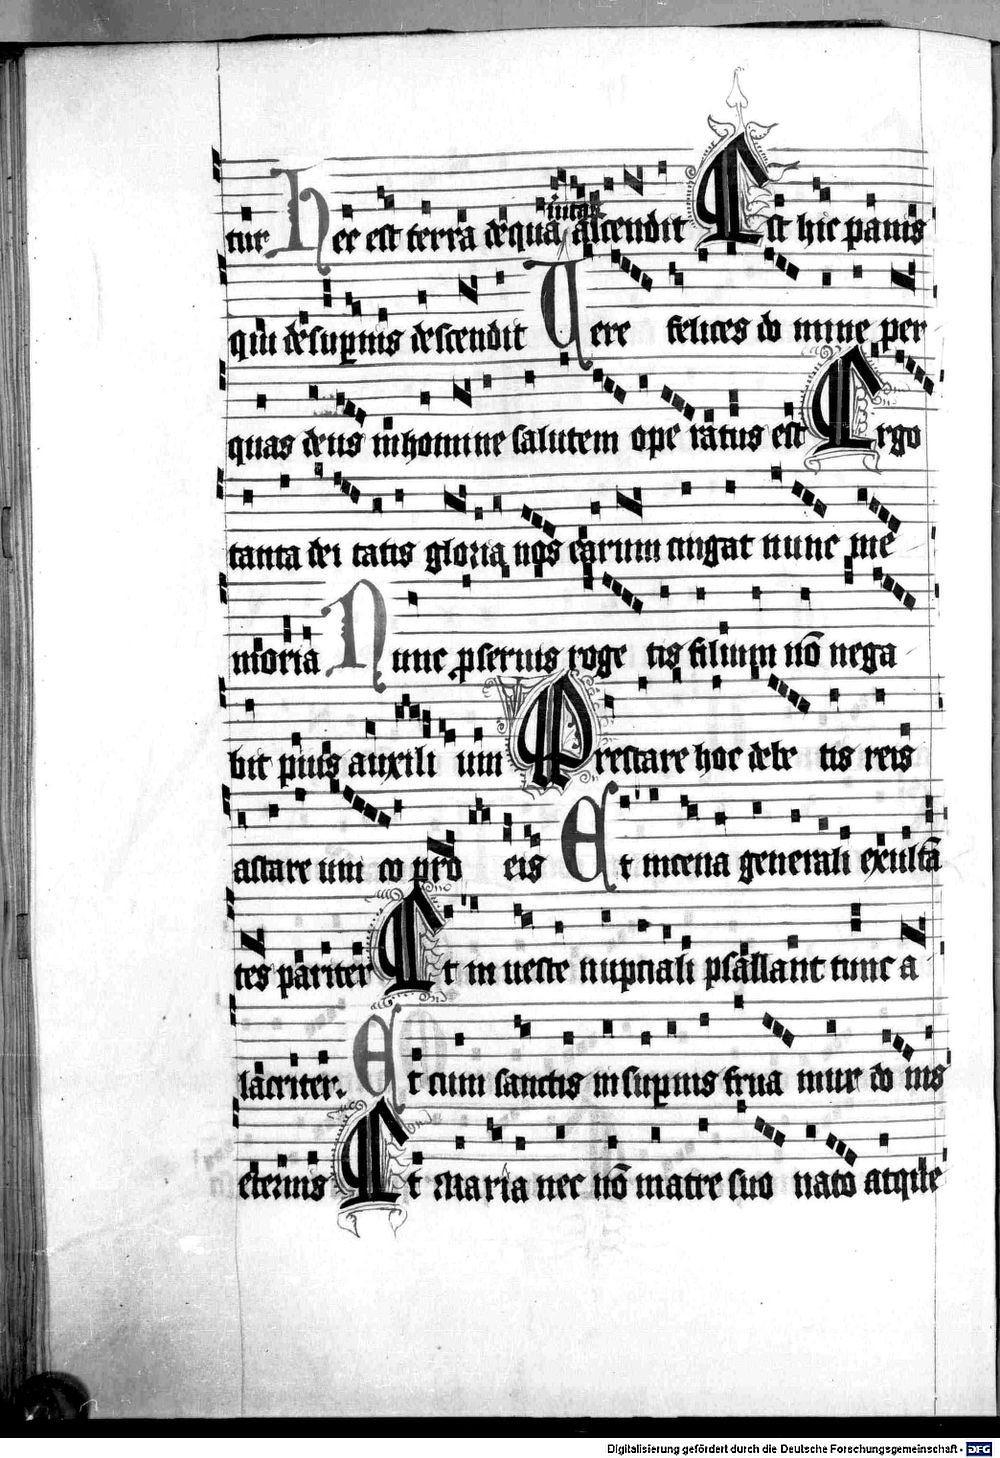 tur Hec est terra de qua vitas ascendit Est hic panis
qui de supnis descendit Vere felices do mine per
quas deus in homine salutem ope ratus est Ergo
tanta dei tatis gloria nos earum tingat nunc me
moria Nunc pserius roge tis filium nō nega
bit pius auxili um Prestare hoc debe tis reis
astare um co pro eis Et in cena generali exultā
tes pariter Et in ueste nupciali psallant tunc a
lacriter. Et cum sanctis in supnis frua mur do nis
eternis Et Maria nec nō matre suo nato atque
Digitalisierung gefördert durch die Deutsche Forschungsgemeinschaft - DFG